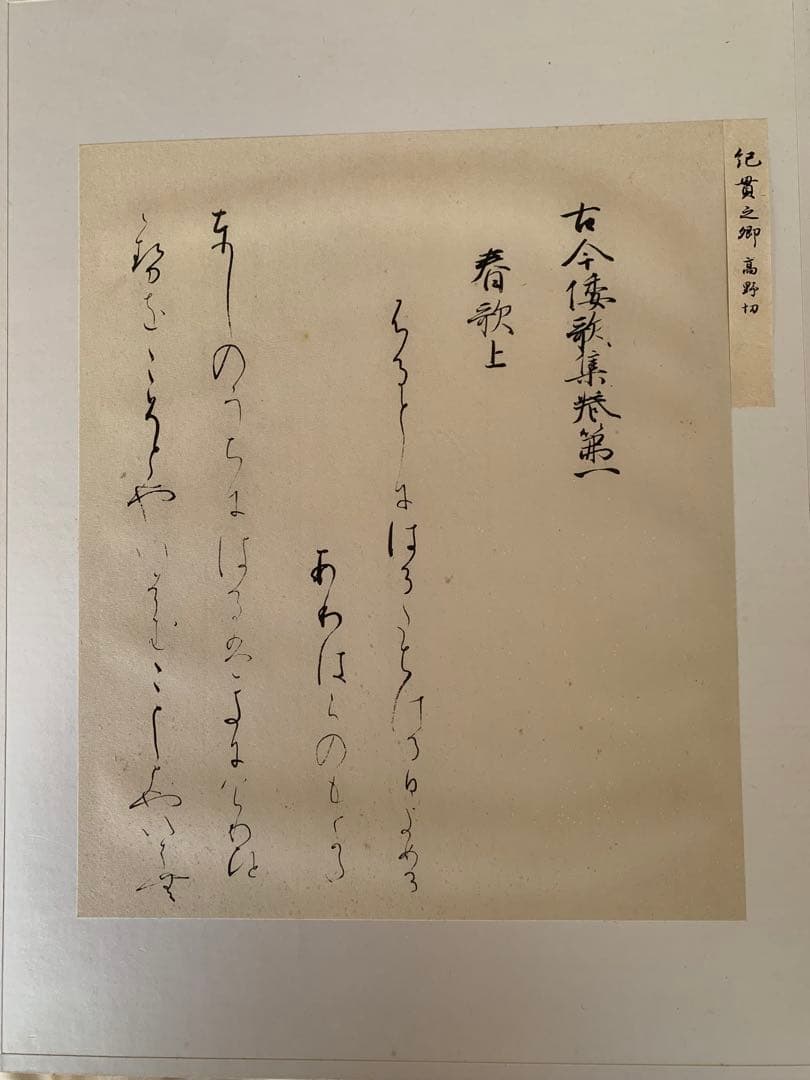 紀貫之卿 高野切
古今倭歌集巻第一
春歌上
ふるとしにはるたちける日よめる
ありはらのもとかた
としのうちにはるはきにけりひと
ゝせをこそとやいはむことしとやいはむ